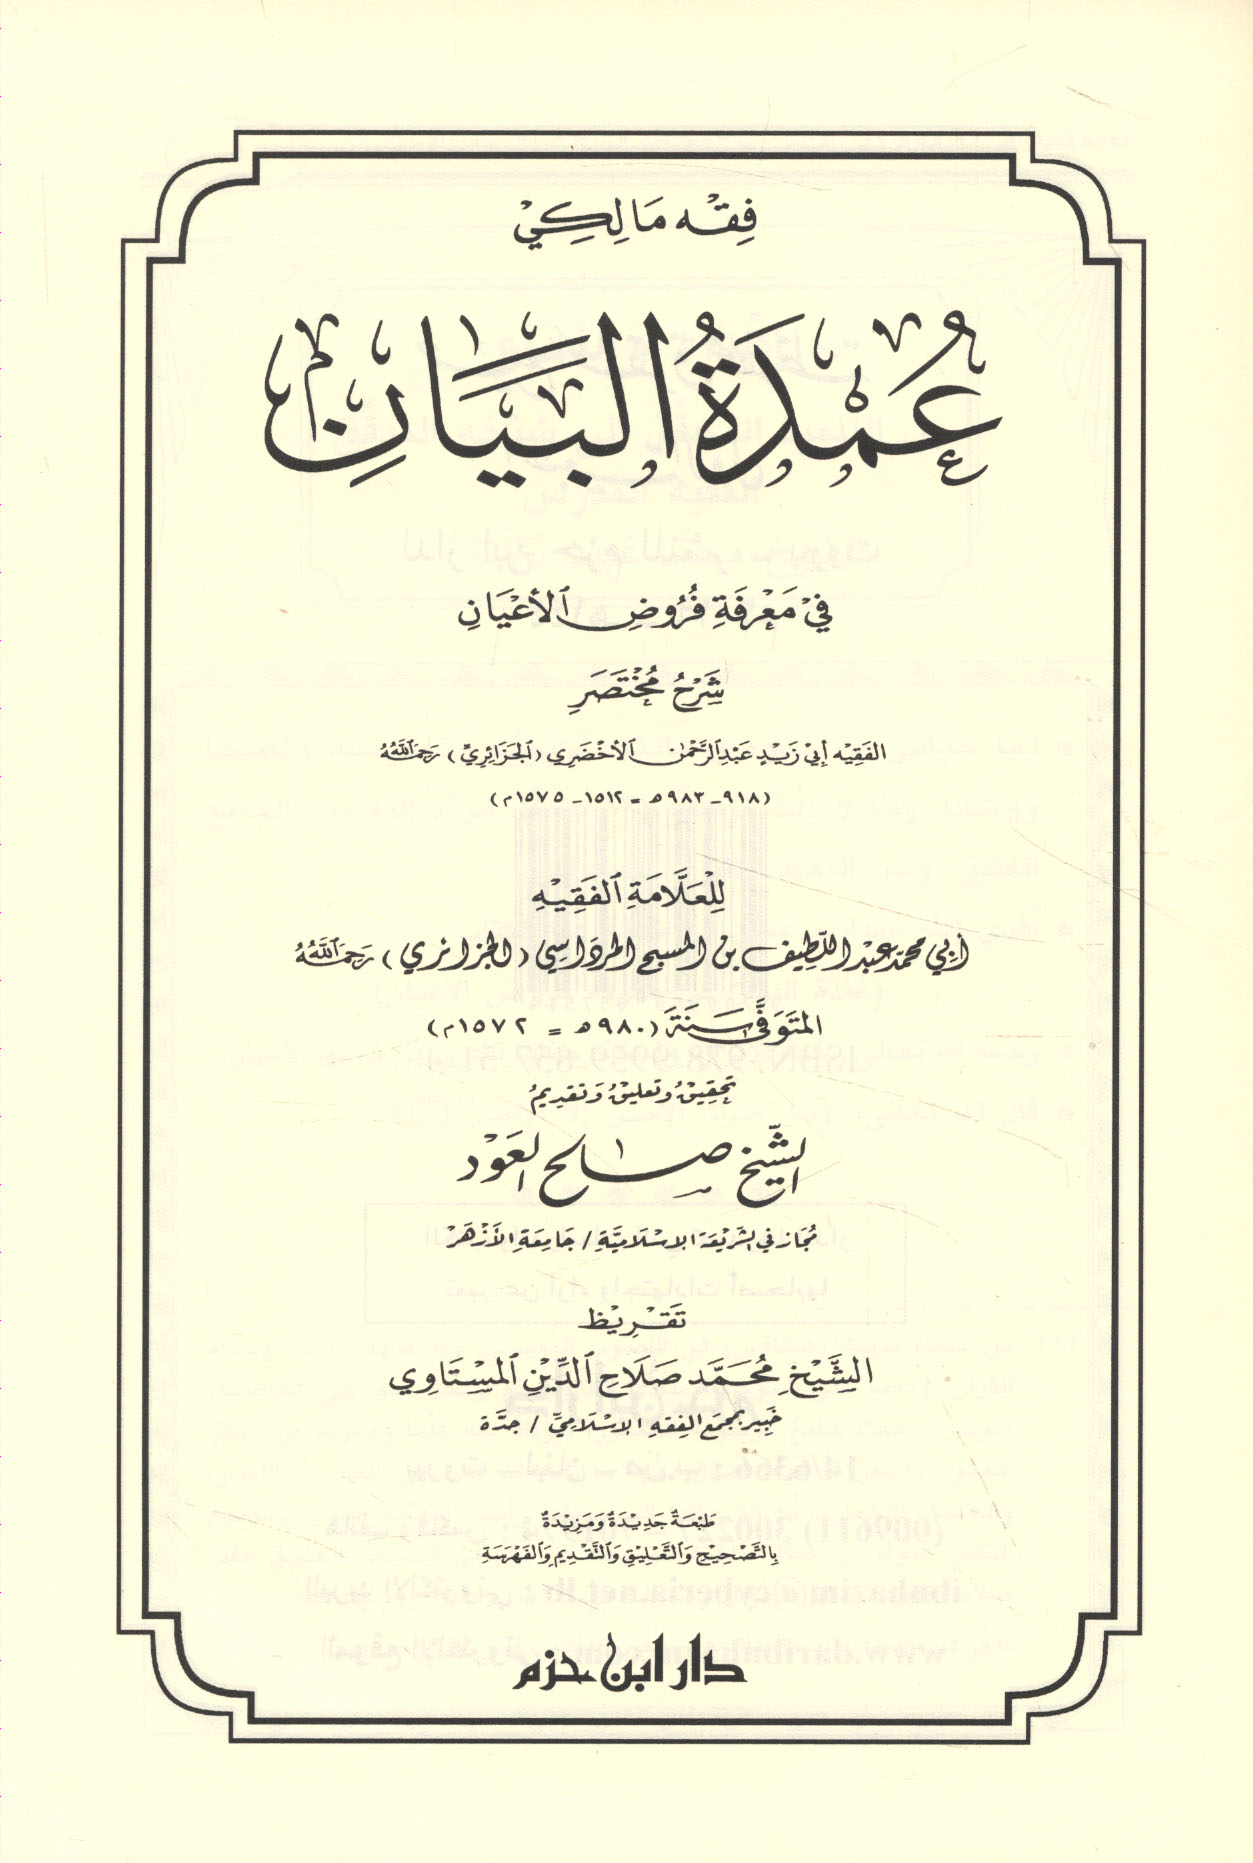 فِقْه مَالِكِيْ
عُمْدَةُ البَيَانِ
فِيْ مَعْرِفَةِ فُرُوضِ الأَعْيَانِ
شَرْحُ مُخْتَصَرِ
الفَقِيْه أَبِيْ زَيْدٍ عَبْدِ الرَّحْمٰن الأَخْضَرِي (الجَزَائِرِيِّ) رَحِمَهُ اللَّهُ
(٩١٨ - ٩٨٣هـ = ١٥١٢ - ١٥٧٥م)
لِلْعَلَّامَةِ الفَقِيْهِ
أَبِي مُحَمَّد عَبْد اللَّطِيف بن المسبح المرداسي (الجزائري) رَحِمَهُ اللَّهُ
المُتَوَفَّى سَنَةَ (٩٨٠هـ = ١٥٧٢م)
تحقِيقُ وتعليقُ وَتقديمُ
الشَّيْخ صالح العَوْد
مُجَاز فِي الشَّرِيْعَة الإِسْلَامِيَّةِ / جَامِعَة الأَزْهَرْ
تَقْرِيْظ
الشَّيْخِ مُحَمَّد صَلَاحِ الدِّيْنِ المِسْتَاوِي
خَبِير بمَجْمَعِ الفِقهِ الإِسْلَامِيِّ / جدَّة
طَبْعَةٌ جَدِيْدَةٌ وَمَزِيْدَةٌ
بِالتَّصْحِيْحِ وَالتَّعْلِيْقِ وَالتَّقْدِيْمِ وَالفَهْرَسَةِ
دار ابن حزم